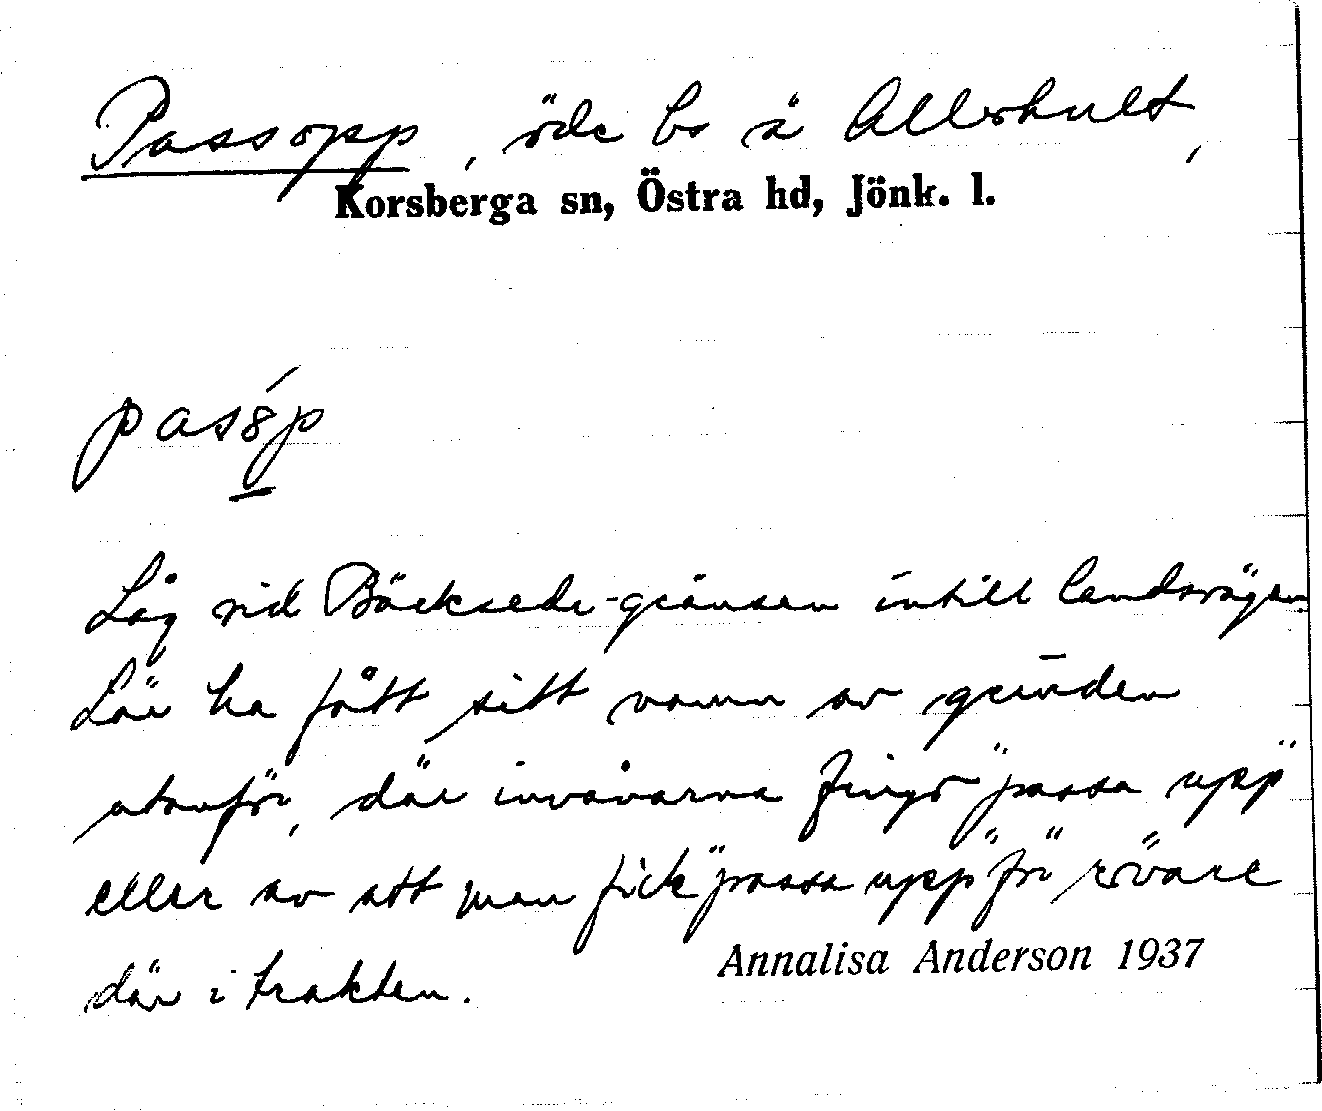 Passopp, öde bs å Allershult,
Korsberga sn, Östra hd, Jönk. l.
pasóp
Låg vid Bäckseda-gränsen intill landsvägen.
Lär ha fått sitt namn av grinden
utanför, där invånarna fingo "passa upp"
eller av att man fick "passa upp" för rövare
där i trakten.
Annalisa Anderson 1937